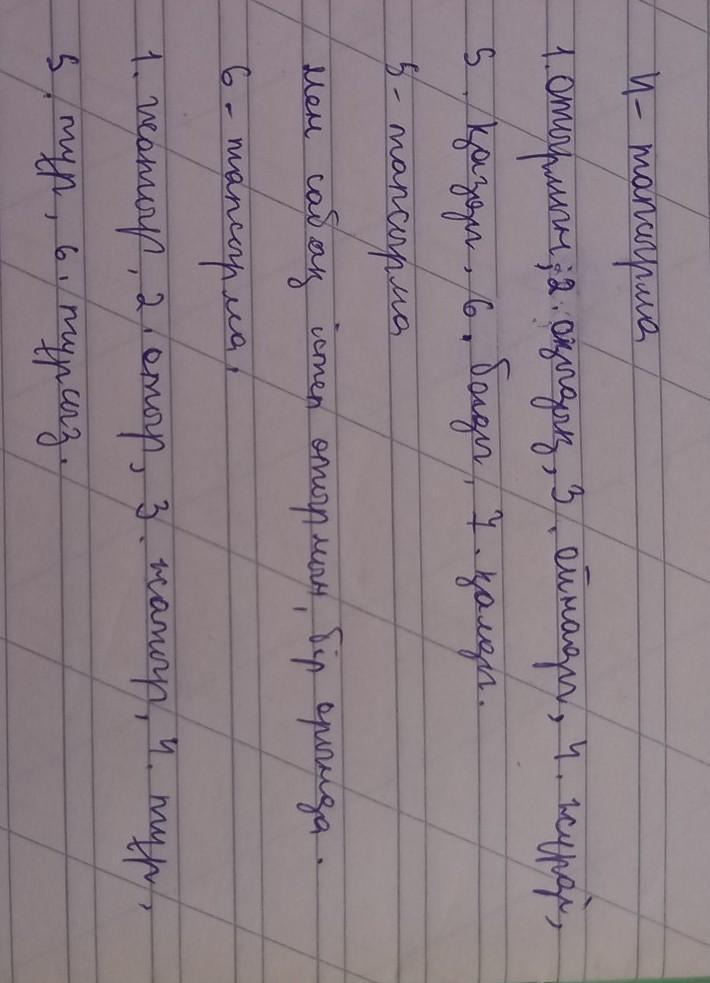 4- тапсырма
1. отырмын, 2. оқылады, 3. ойнайды, 4. жүреді,
5. қазады, 6. болады, 7. қалады.
5- тапсырма
Мен сабақ істеп отырмын, бір орында.
6- тапсырма.
1. жатыр, 2. отыр, 3. жатыр, 4. тұр,
5. тұр, 6. тұрсыз.